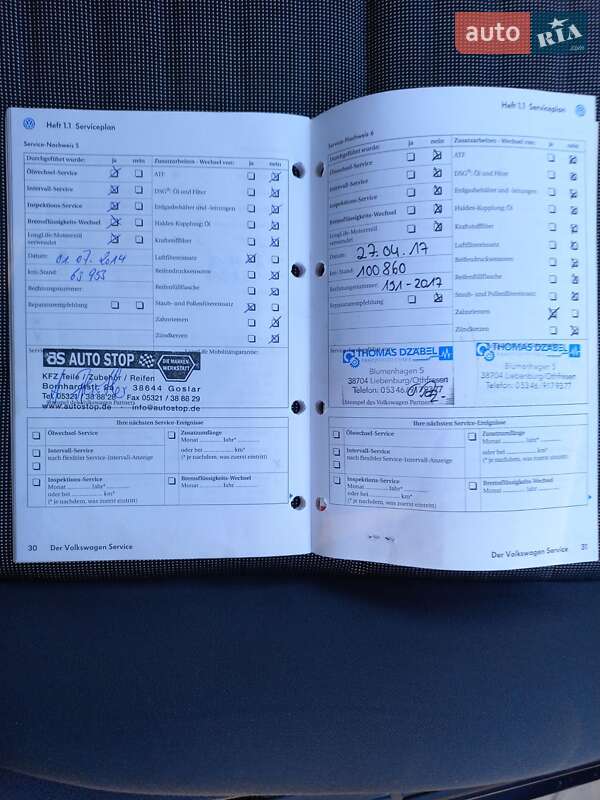 auto RIA
.com
Heft 1.1 Serviceplan
Service-Nachweis 5
Durchgeführt wurde: ja nein
Ölwechsel-Service
Intervall-Service
Inspektions-Service
Bremsflüssigkeits-Wechsel
LongLife-Motorenöl
verwendet
Datum: 01.07.2014
km-Stand: 63 953
Rechnungsnummer:
Reparaturempfehlung
Zusatzarbeiten - Wechsel von: ja nein
ATF
DSG®: Öl und Filter
Erdgasbehälter und -leitungen
Haldex-Kupplung: Öl
Kraftstofffilter
Luftfiltereinsatz
Reifendruckesensoren
Reifenfüllflasche
Staub- und Pollenfiltereinsatz
Zahnriemen
Zündkerzen
as AUTO STOP
DIE MARKEN-
WERKSTATT
KFZ Teile / Zubehör / Reifen
Bornhardtstr. 38644 Goslar
Tel. 05321 / 38 88 28 Fax 05321 / 38 88 29
www.autostop.de info@autostop.de
Stempel des Volkswagen Partners
Ihre nächsten Service-Ereignisse
Ölwechsel-Service
Intervall-Service
nach flexibler Service-Intervall-Anzeige
Inspektions-Service
Monat Jahr*
oder bei km*
(* je nachdem, was zuerst eintritt)
Zusatzumfänge
Monat Jahr*
oder bei km*
(* je nachdem, was zuerst eintritt)
Bremsflüssigkeits-Wechsel
Monat Jahr
30 Der Volkswagen Service
Heft 1.1 Serviceplan
Service-Nachweis 6
Durchgeführt wurde: ja nein
Ölwechsel-Service
Intervall-Service
Inspektions-Service
Bremsflüssigkeits-Wechsel
LongLife-Motorenöl
verwendet
Datum: 27.04.17
km-Stand: 100 860
Rechnungsnummer: 191-2017
Reparaturempfehlung
Zusatzarbeiten - Wechsel von: ja nein
ATF
DSG®: Öl und Filter
Erdgasbehälter und -leitungen
Haldex-Kupplung: Öl
Kraftstofffilter
Luftfiltereinsatz
Reifendrucksensoren
Reifenfüllflasche
Staub- und Pollenfiltereinsatz
Zahnriemen
Zündkerzen
THOMAS DZABEL
Blumenhagen 5
38704 Liebenburg/Othfresen
Telefon: 05346
THOMAS DZABEL
Blumenhagen 5
38704 Liebenburg/Othfresen
Telefon: 05346 9179377
Stempel des Volkswagen Partners
Ihre nächsten Service-Ereignisse
Ölwechsel-Service
Intervall-Service
nach flexibler Service-Intervall-Anzeige
Inspektions-Service
Monat Jahr*
oder bei km*
(* je nachdem, was zuerst eintritt)
Zusatzumfänge
Monat Jahr*
oder bei km*
(* je nachdem, was zuerst eintritt)
Bremsflüssigkeits-Wechsel
Monat Jahr
Der Volkswagen Service 31